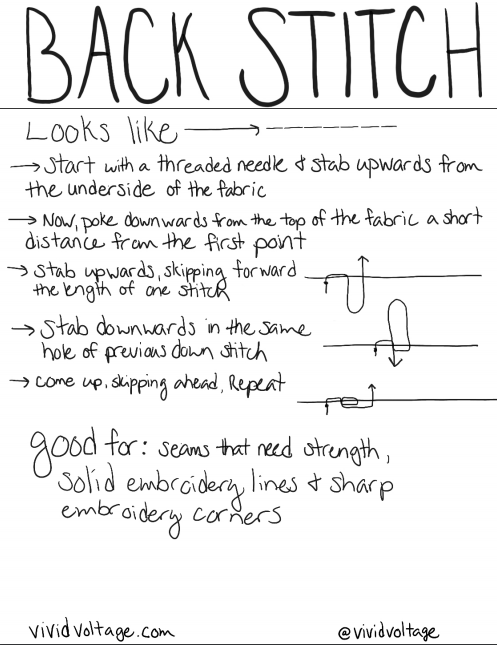 BACK STITCH
Looks like → ---------
→ Start with a threaded needle & stab upwards from
the underside of the fabric
→ Now, poke downwards from the top of the fabric a short
distance from the first point
→ Stab upwards, skipping forward
the length of one stitch
→ Stab downwards in the same
hole of previous down stitch
→ Come up, skipping ahead, Repeat
good for: seams that need strength,
solid embroidery lines & sharp
embroidery corners
vividvoltage.com
@vividvoltage